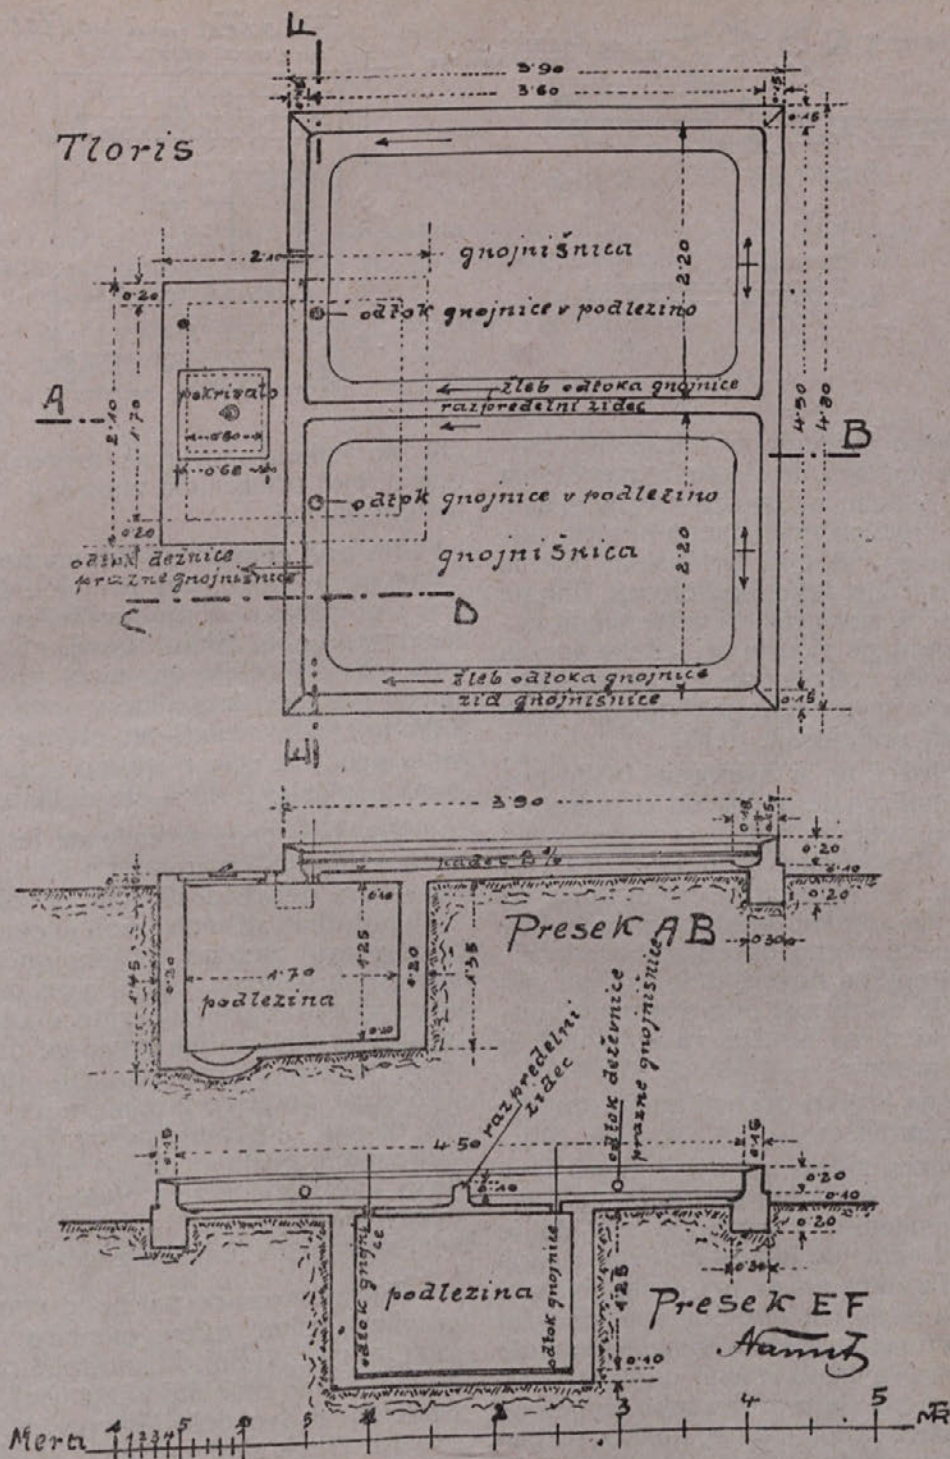 F
3·90
3·60
0·15
0·15
Tloris
gnojnišnica
2·20
2·10
0·20
odtok gnojnice v podlezino
A
pokrivalo
žleb odtoka gnojnice
razpredelni zidec
2·10
1·70
0·60
0·68
4·50
4·80
B
odtok gnojnice v podlezino
gnojnišnica
2·20
0·20
odtok dežnice
prazne gnojnišnice
C
D
žleb odtoka gnojnice
zid gnojnišnice
0·15
E
3·90
0·15
0·20
0·10
0·20
padec 3%
Presek AB
0·30
1·45
0·20
1·70
1·25
0·10
0·20
1·35
podlezina
razpredelni
zidec
odtok deževnice
prazne gnojnišnice
0·15
4·50
0·15
0·10
0·20
0·10
0·20
0·30
odtok gnojnice
podlezina
odtok gnojnice
1·25
0·10
Presek EF
Mera
1 2 3 4 5
1
2
3
4
5